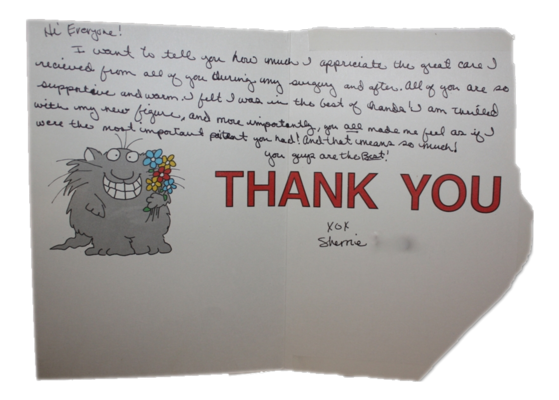 Hi Everyone!
I want to tell you how much I appriciate the great care I
recieved from all of you during my surgery and after. All of you are so
supportive and warm I felt I was in the best of hands! I am thrilled
with my new figure, and more importantly, you all made me feel as if I
were the most important patient you had! And that means so much!
you guys are the Best!
THANK YOU
xox
Sherrie